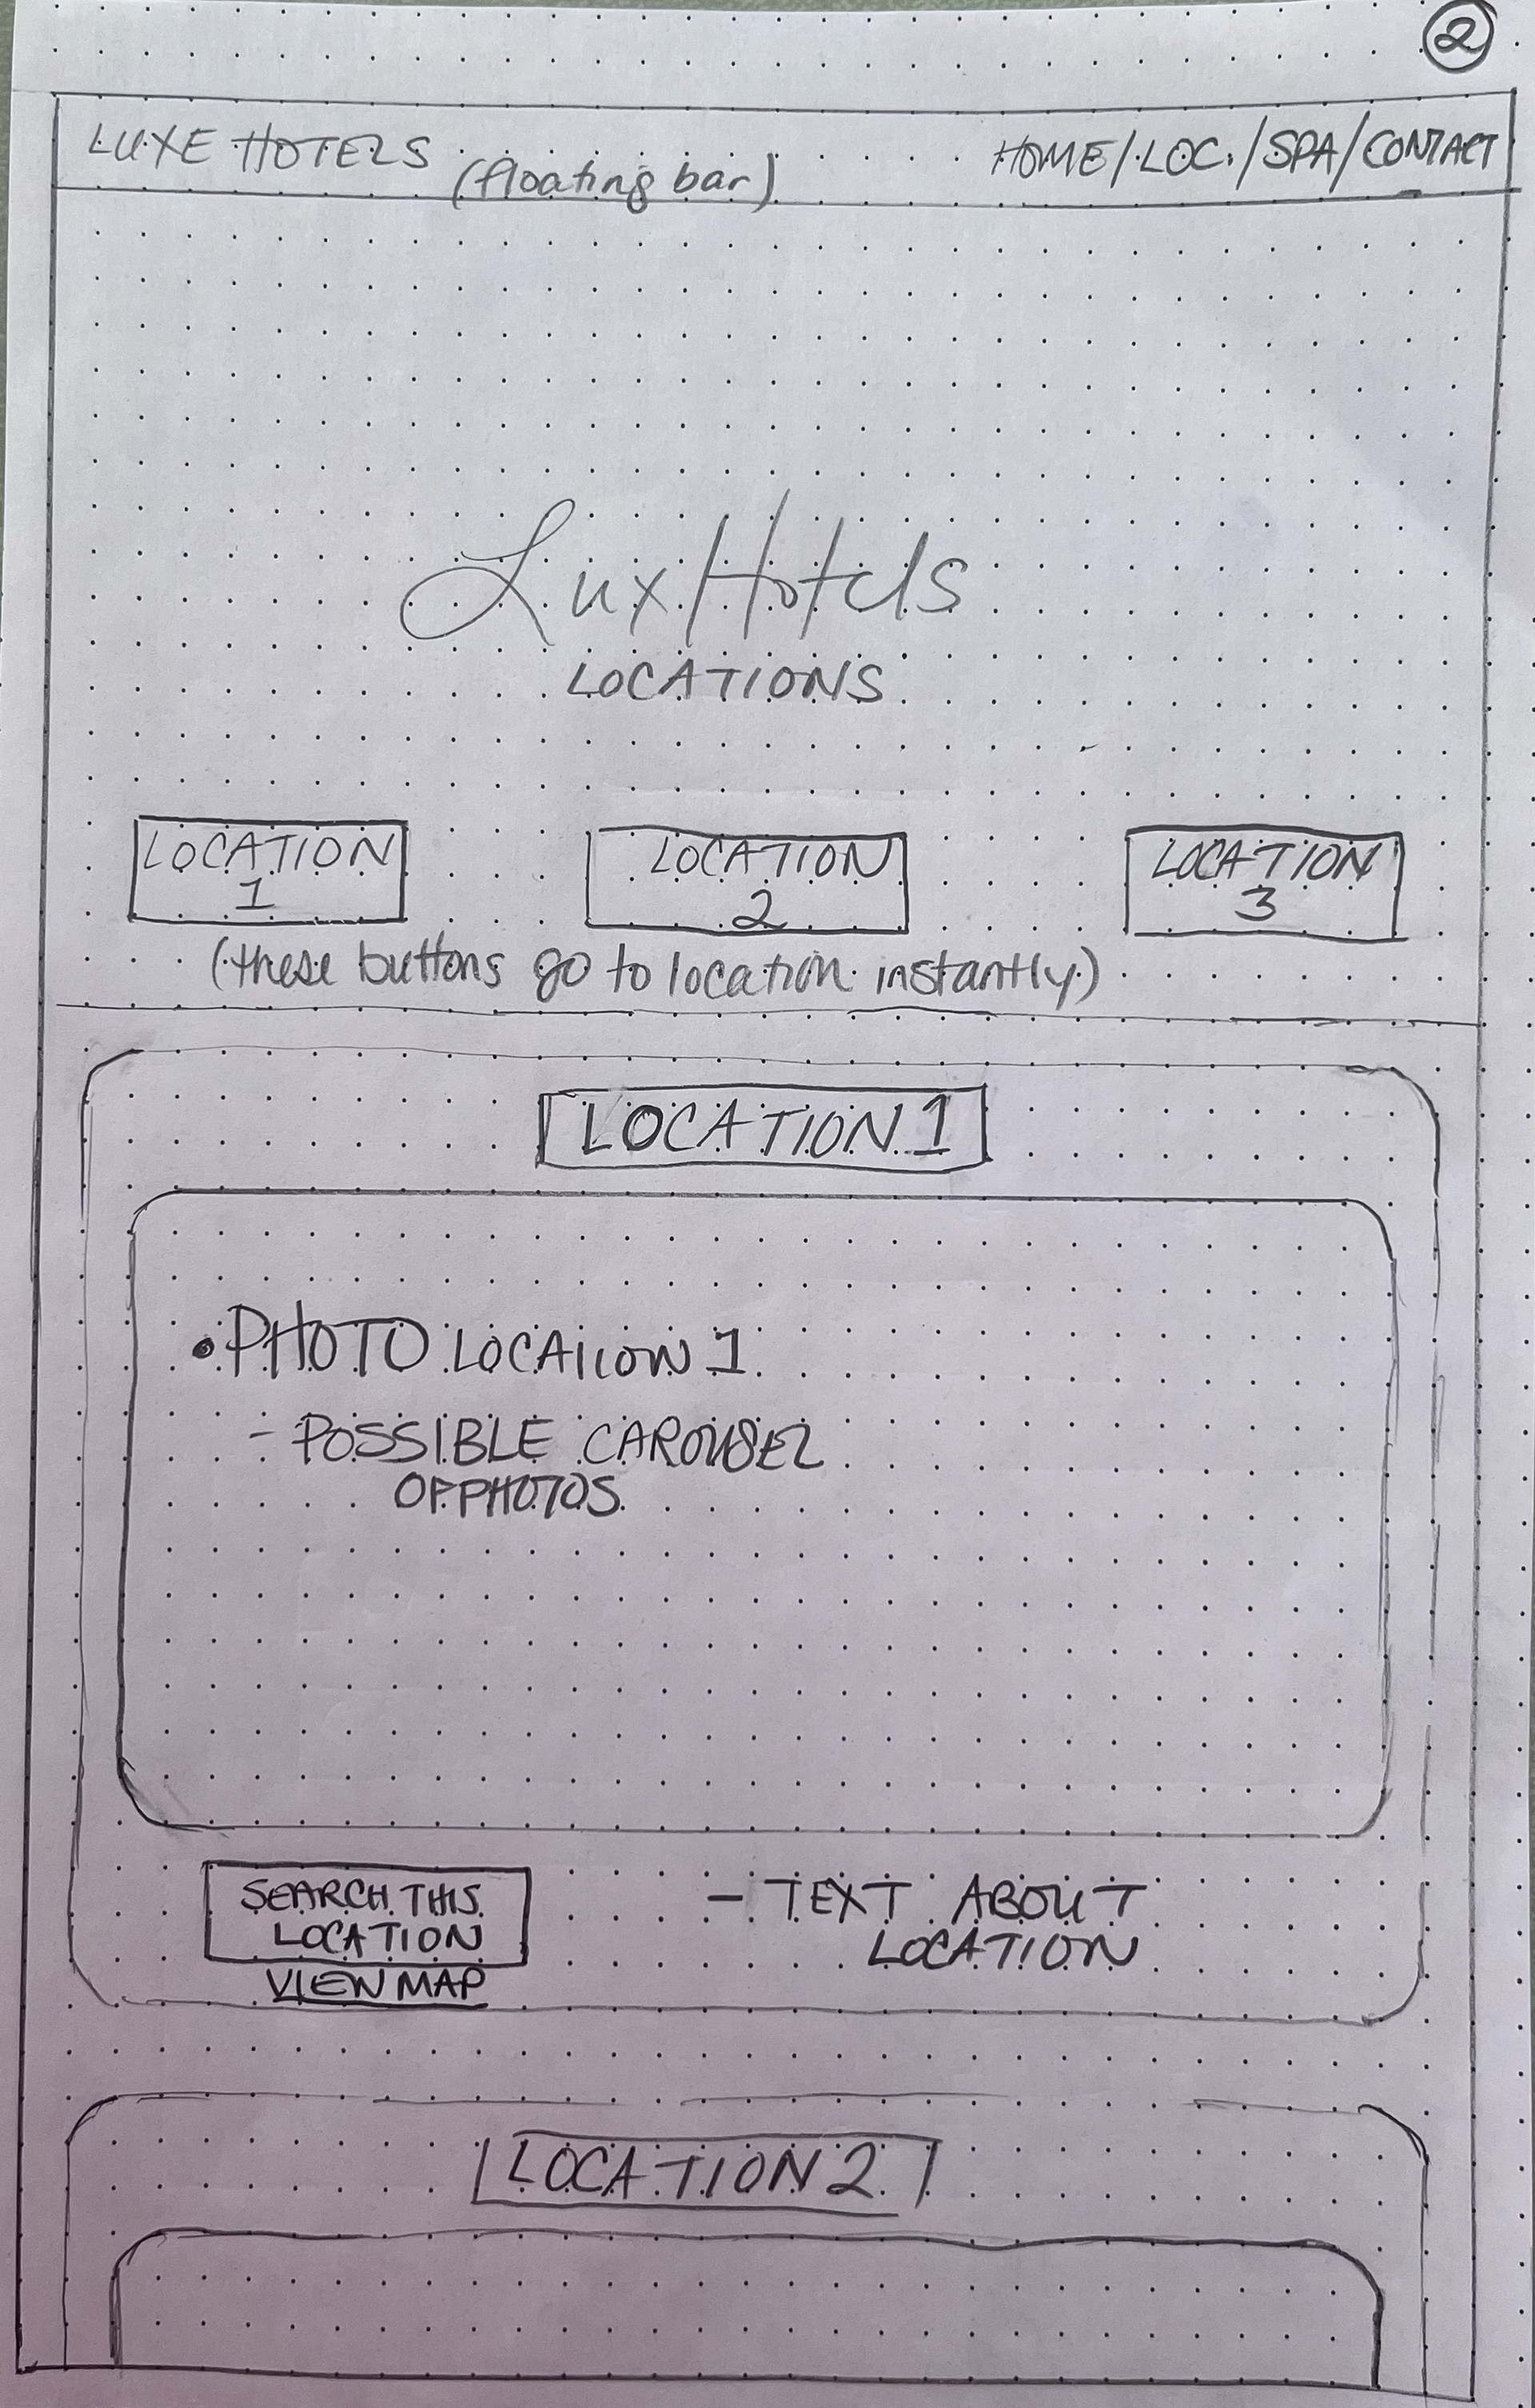 2
LUXE HOTELS (floating bar) HOME/LOC./SPA/CONTACT
Lux Hotels
LOCATIONS
LOCATION
1
LOCATION
2
LOCATION
3
(these buttons go to location instantly)
LOCATION 1
• PHOTO LOCATION 1
- POSSIBLE CAROUSEL
OF PHOTOS
SEARCH THIS
LOCATION
VIEW MAP
- TEXT ABOUT
LOCATION
LOCATION 2